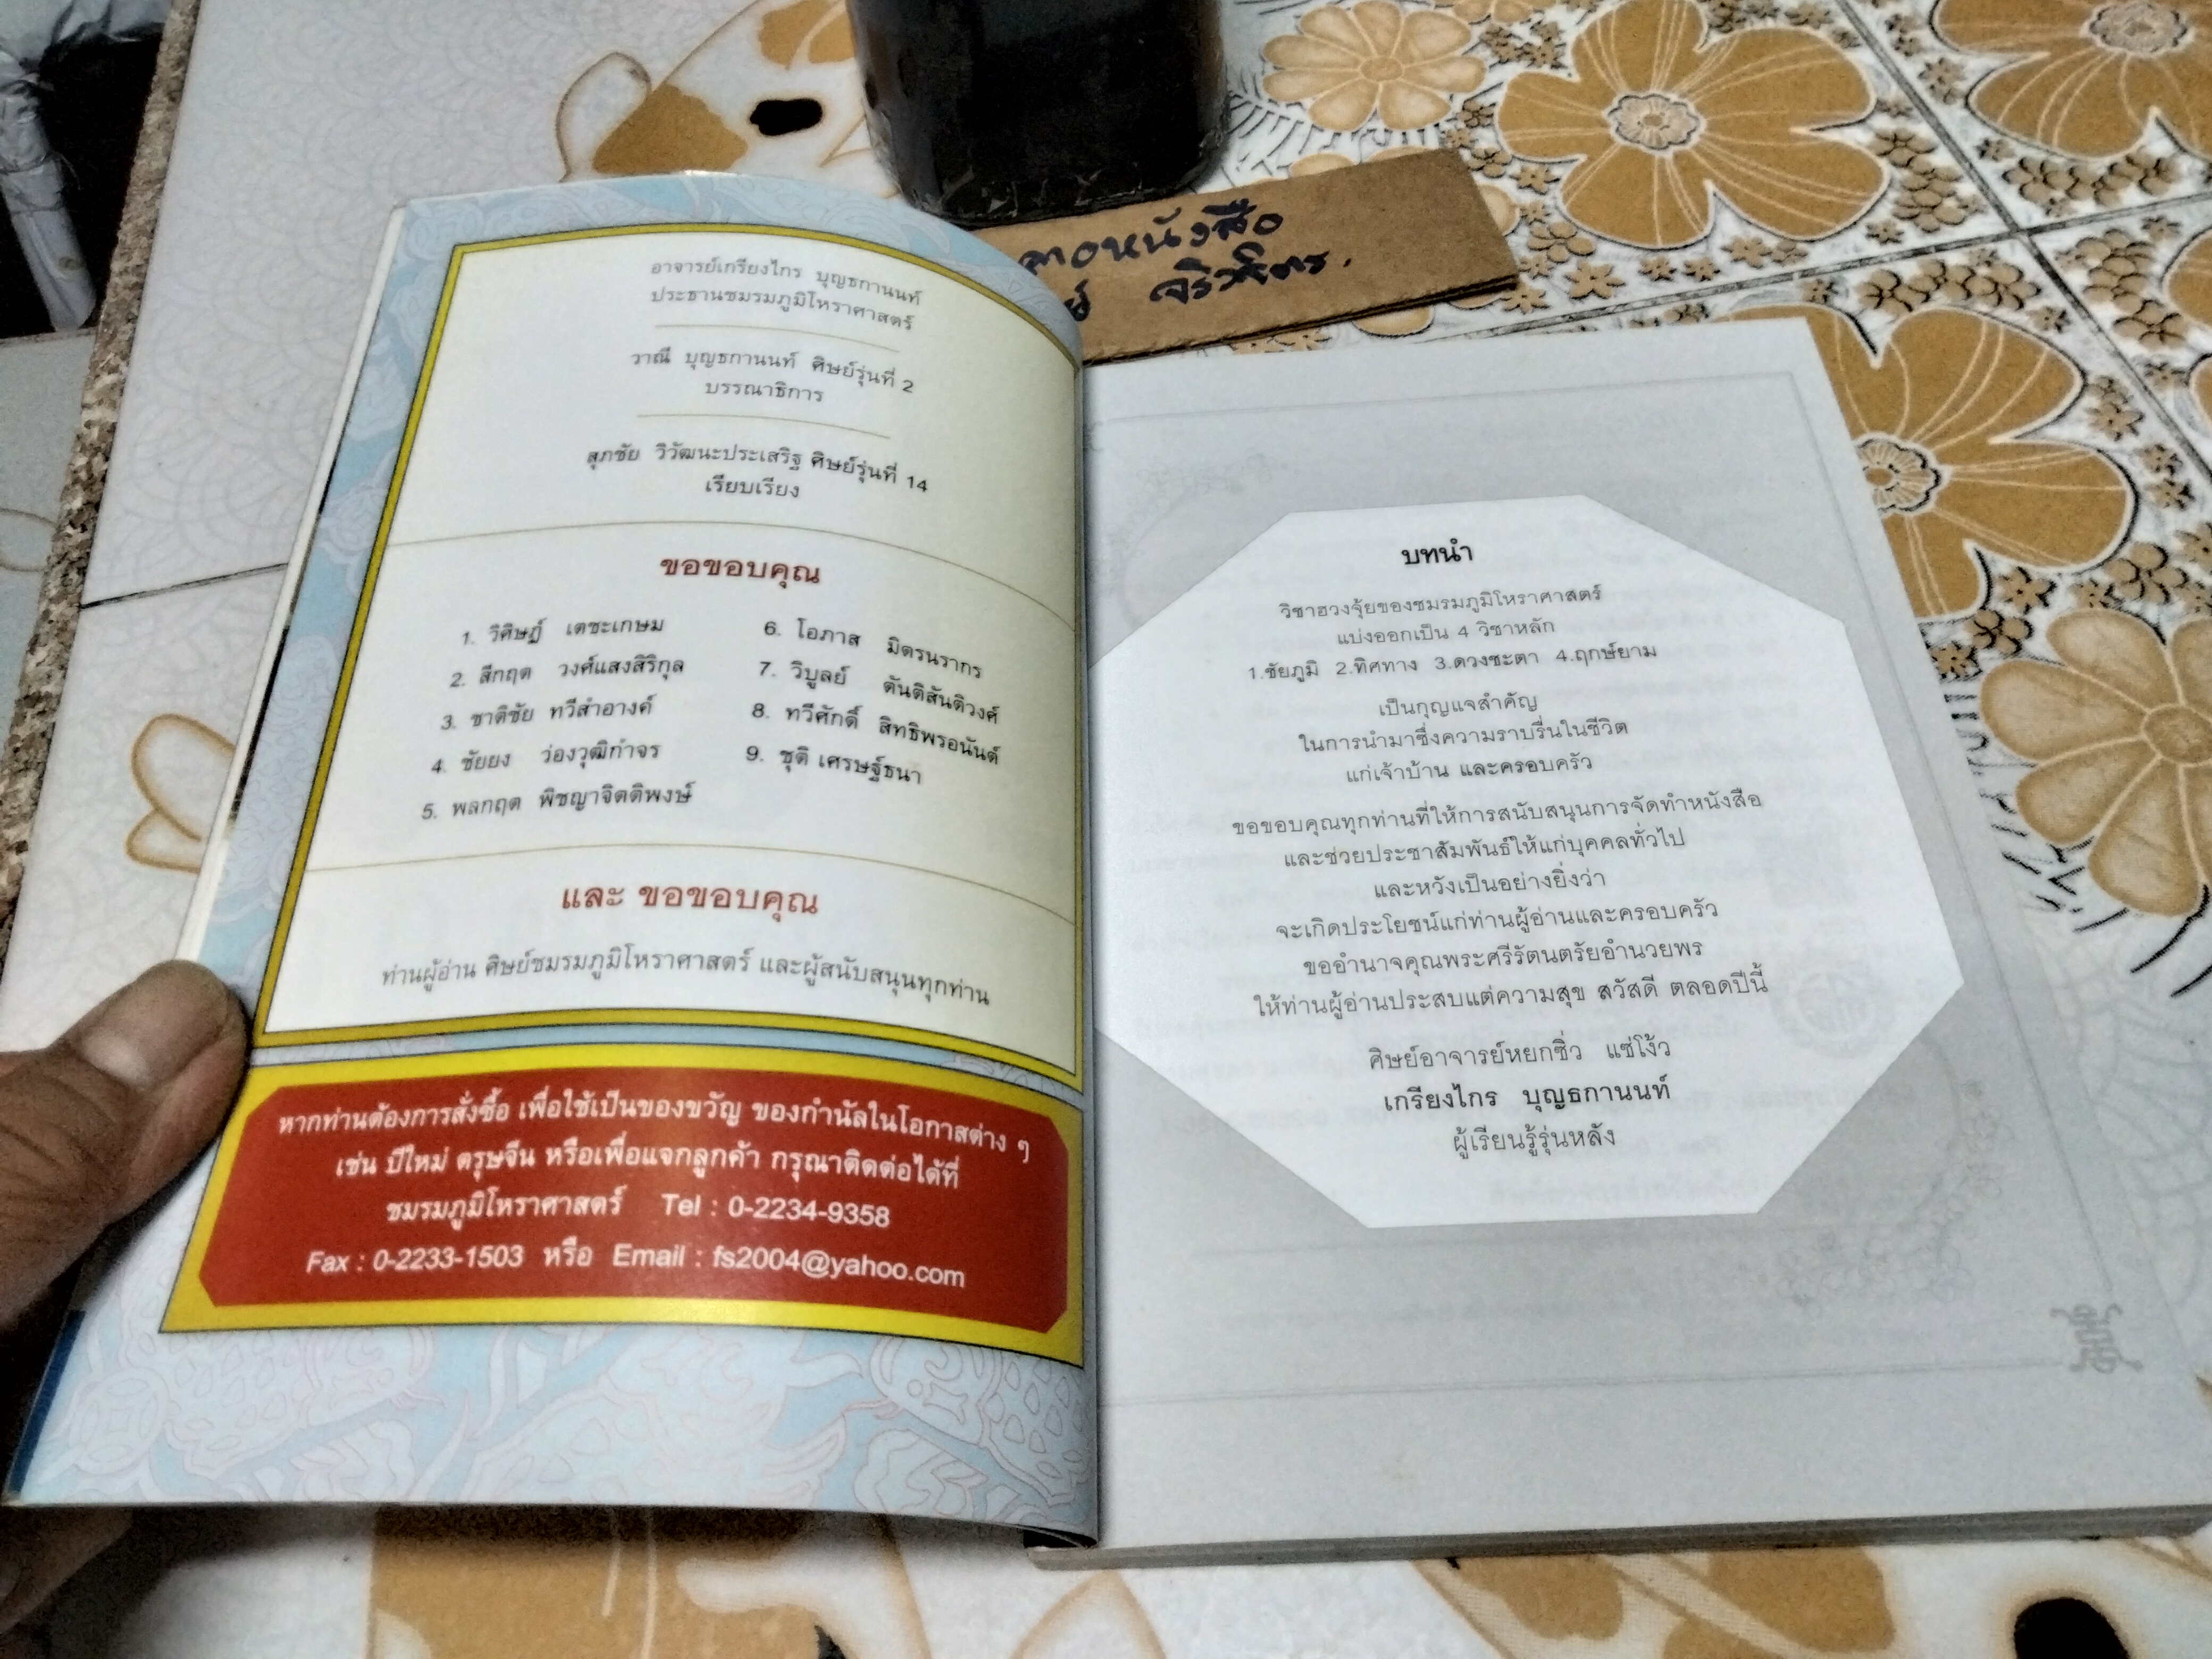 อาจารย์เกรียงไกร บุญธกานนท์
ประธานชมรมภูมิโหราศาสตร์
วาณี บุญธกานนท์ ศิษย์รุ่นที่ 2
บรรณาธิการ
สุภชัย วิวัฒนะประเสริฐ ศิษย์รุ่นที่ 14
เรียบเรียง
ขอขอบคุณ
1. วิศิษฎ์ เตชะเกษม
2. สีกฤต วงศ์แสงสิริกุล
3. ชาติชัย ทวีสำอางค์
4. ชัยยง ว่องวุฒิกำจร
5. พลกฤต พิชญาจิตติพงษ์
6. โอภาส มิตรนรากร
7. วิบูลย์ ตันติสันติวงศ์
8. ทวีศักดิ์ สิทธิพรอนันต์
9. ชุติ เศรษฐ์ธนา
และ ขอขอบคุณ
ท่านผู้อ่าน ศิษย์ชมรมภูมิโหราศาสตร์ และผู้สนับสนุนทุกท่าน
หากท่านต้องการสั่งซื้อ เพื่อใช้เป็นของขวัญ ของกำนัลในโอกาสต่าง ๆ
เช่น ปีใหม่ ตรุษจีน หรือเพื่อแจกลูกค้า กรุณาติดต่อได้ที่
ชมรมภูมิโหราศาสตร์ Tel : 0-2234-9358
Fax : 0-2233-1503 หรือ Email : fs2004@yahoo.com
บทนำ
วิชาฮวงจุ้ยของชมรมภูมิโหราศาสตร์
แบ่งออกเป็น 4 วิชาหลัก
1.ชัยภูมิ 2.ทิศทาง 3.ดวงชะตา 4.ฤกษ์ยาม
เป็นกุญแจสำคัญ
ในการนำมาซึ่งความราบรื่นในชีวิต
แก่เจ้าบ้าน และครอบครัว
ขอขอบคุณทุกท่านที่ให้การสนับสนุนการจัดทำหนังสือ
และช่วยประชาสัมพันธ์ให้แก่บุคคลทั่วไป
และหวังเป็นอย่างยิ่งว่า
จะเกิดประโยชน์แก่ท่านผู้อ่านและครอบครัว
ขออำนาจคุณพระศรีรัตนตรัยอำนวยพร
ให้ท่านผู้อ่านประสบแต่ความสุข สวัสดี ตลอดปีนี้
ศิษย์อาจารย์หยกซิ่ว แซ่โง้ว
เกรียงไกร บุญธกานนท์
ผู้เรียนรู้รุ่นหลัง